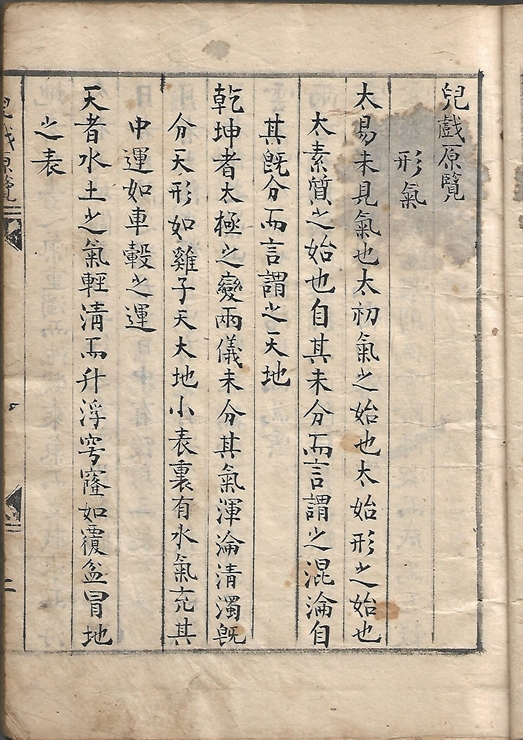 兒戱原覽
形氣
太易未見氣也太初氣之始也太始形之始也
太素質之始也自其未分而言謂之混淪自
其旣分而言謂之天地
乾坤者太極之變兩儀未分其氣渾淪清濁旣
分天形如雞子天大地小表裏有水氣充其
中運如車轂之運
天者水土之氣輕淸而升浮穹窿如覆盆冒地
之表
兒戱原覽